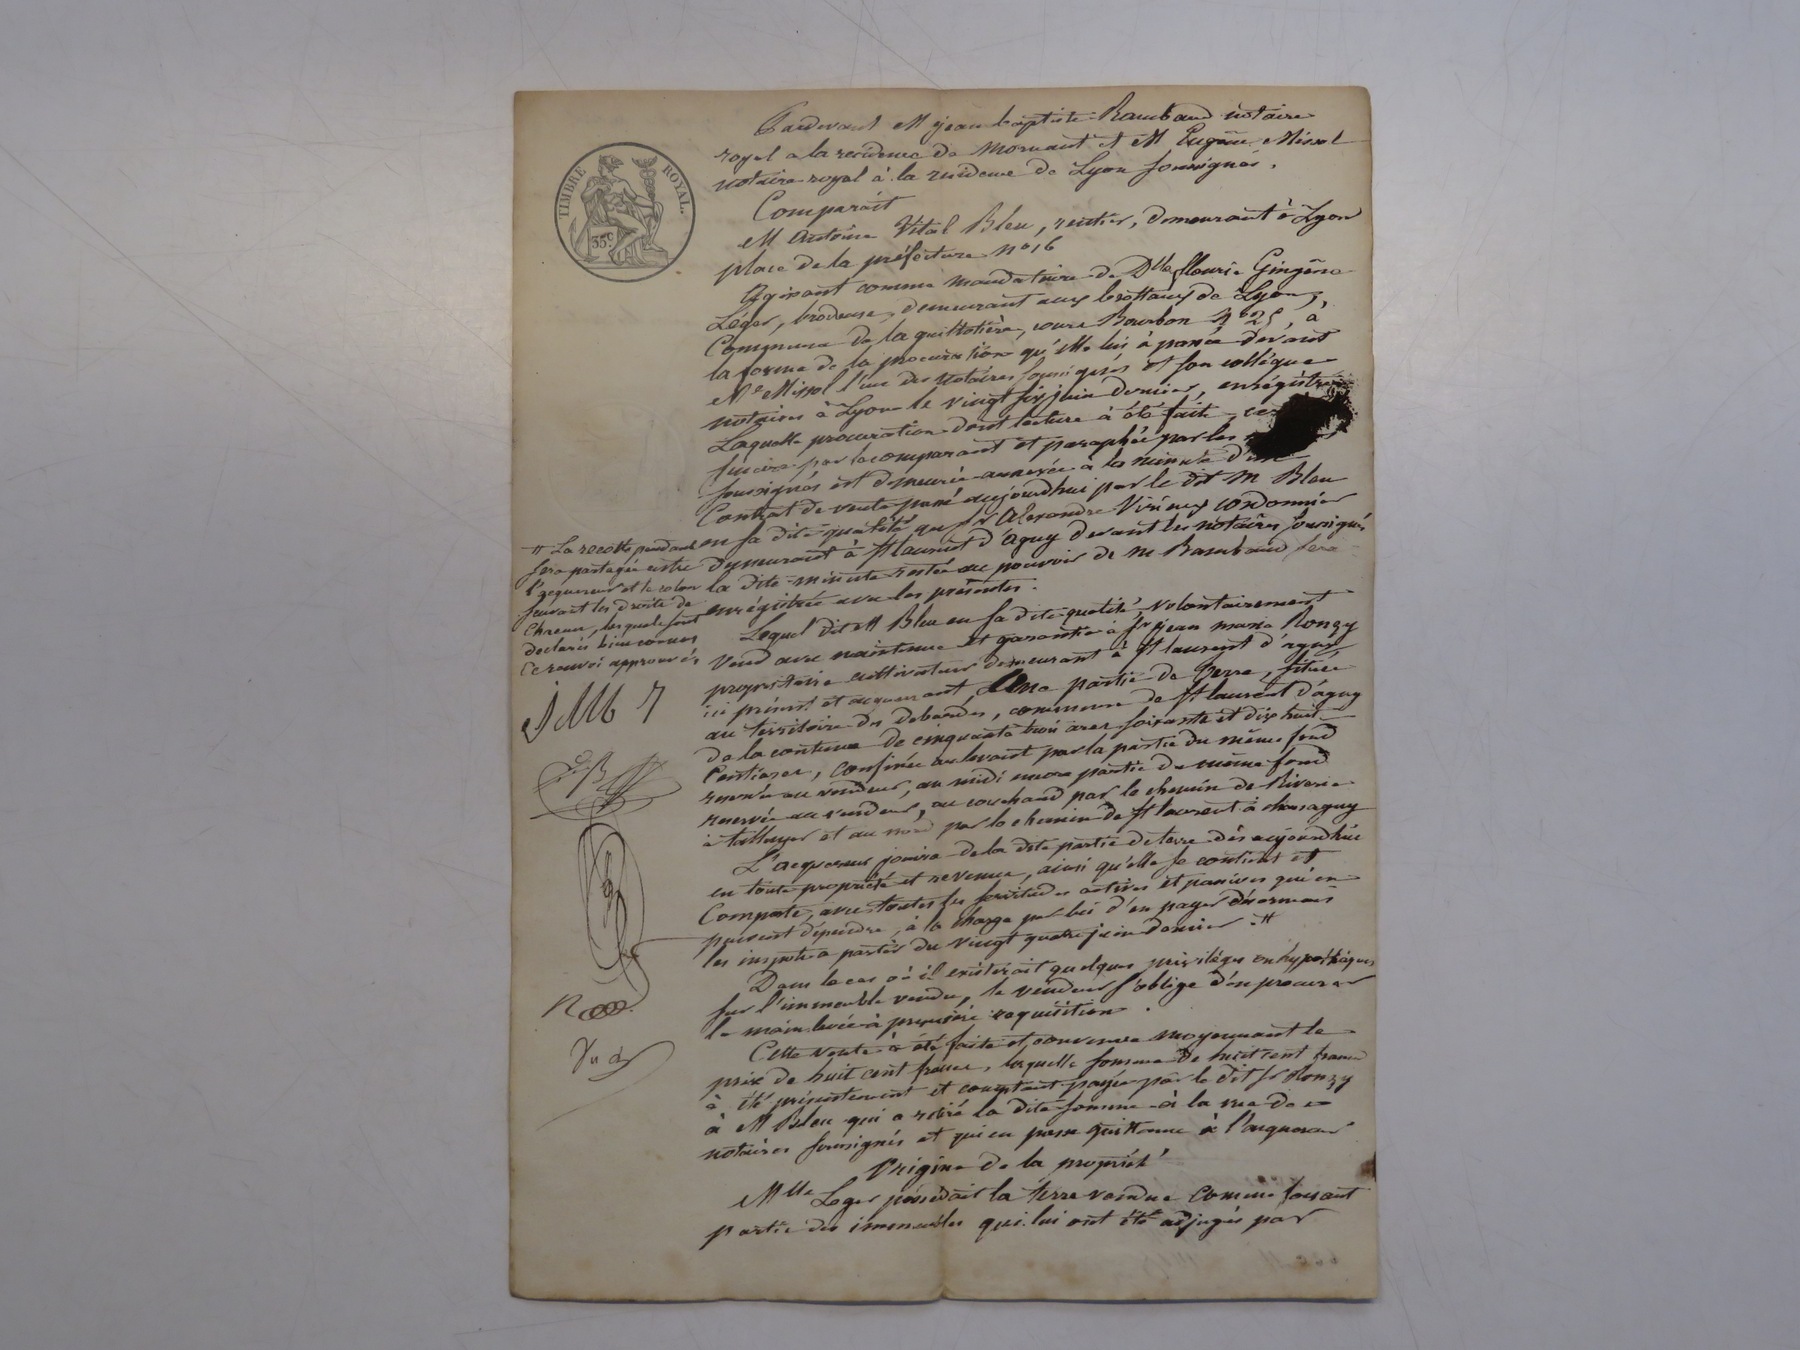 TIMBRE ROYAL.
35c
Pardevant M jean baptiste Rambaud notaire
royal a la residence de Mornant et M Eugène Missol
notaire royal à la residence de Lyon soussignés.
Comparait
M Antoine Vital Bleu, rentier, demeurant à Lyon
place de la préfecture no 16
Agissant comme mandataire de Dlle fleurie Gingène
Léger, brodeuse, demeurant aux brottaux de Lyon,
Commune de la guillotière, cours Bourbon No 25, à
la forme de la procuration qu'elle lui à passée devant
Me Missol l'un des notaires soussignés et son collègue
notaires à Lyon le vingt six juin dernier, enrégistrée
Laquelle procuration dont lecture à été faite,
sincère par le comparant et paraphée par les
soussignés est demeurée annexée a la minute d'un
Contrat de vente passé aujourdhui par le dit M Bleu
en sa dite qualité au Sr Alexandre Virieux cordonnier
demeurant à St laurent d'agny devant les notaires soussignés
la dite minute restée au pouvoir de m Rambaud sera
enrégistrée avec les présentes.
Lequel dit M Bleu en sa dite qualité, volontairement
vend avec maintenue et garantie à Sr jean marie Ronzy
propriétaire cultivateur demeurant à St laurent d'agny
ici présent et acquerant, Une partie de Terre, située
au territoire des Debardes, commune de St laurent d'agny
de la contenue de cinquante trois ares soixante et dix huit
Centiares, confinée au levant par la partie du même fond
reservée au vendeur, au midi encore partie du même fond
reservée au vendeur, au couchand par le chemin de Riverie
à talluyer et au nord par le chemin de St laurent à chassagny
L'acquereur jouira de la dite partie de terre dès aujourdhui
en toute propriété et revenus, ainsi qu'elle se contient et
Comporte, avec toutes ses servitudes actives et passives qui en
peuvent dépendre, à la charge par lui d'en payer désormais
les impots a partir du vingt quatre juin dernier. #
Dans le cas où il existerait quelques privilèges ou hypothèques
sur l'immeuble vendu, le vendeur s'oblige d'en procurer
la main levée à première requisition.
Cette vente à été faite et convenue moyennant le
prix de huit cent francs, laquelle somme de huit cent francs
à été présentement et comptant payée par le dit Sr Ronzy
à M Bleu qui a retiré la dite somme à la vue de
notaires soussignés et qui en passe quittance à l'acquereur
Origine de la propriété
Mlle Leger possedait la terre vendue comme faisant
partie des immeubles qui lui ont été adjugés par
# La recolte pendante
sera partagée entre
l'acquereur et le colon
suivant les droits de
chacun, lesquels sont
declarés bien connus
Ce renvoi approuvé
JMR